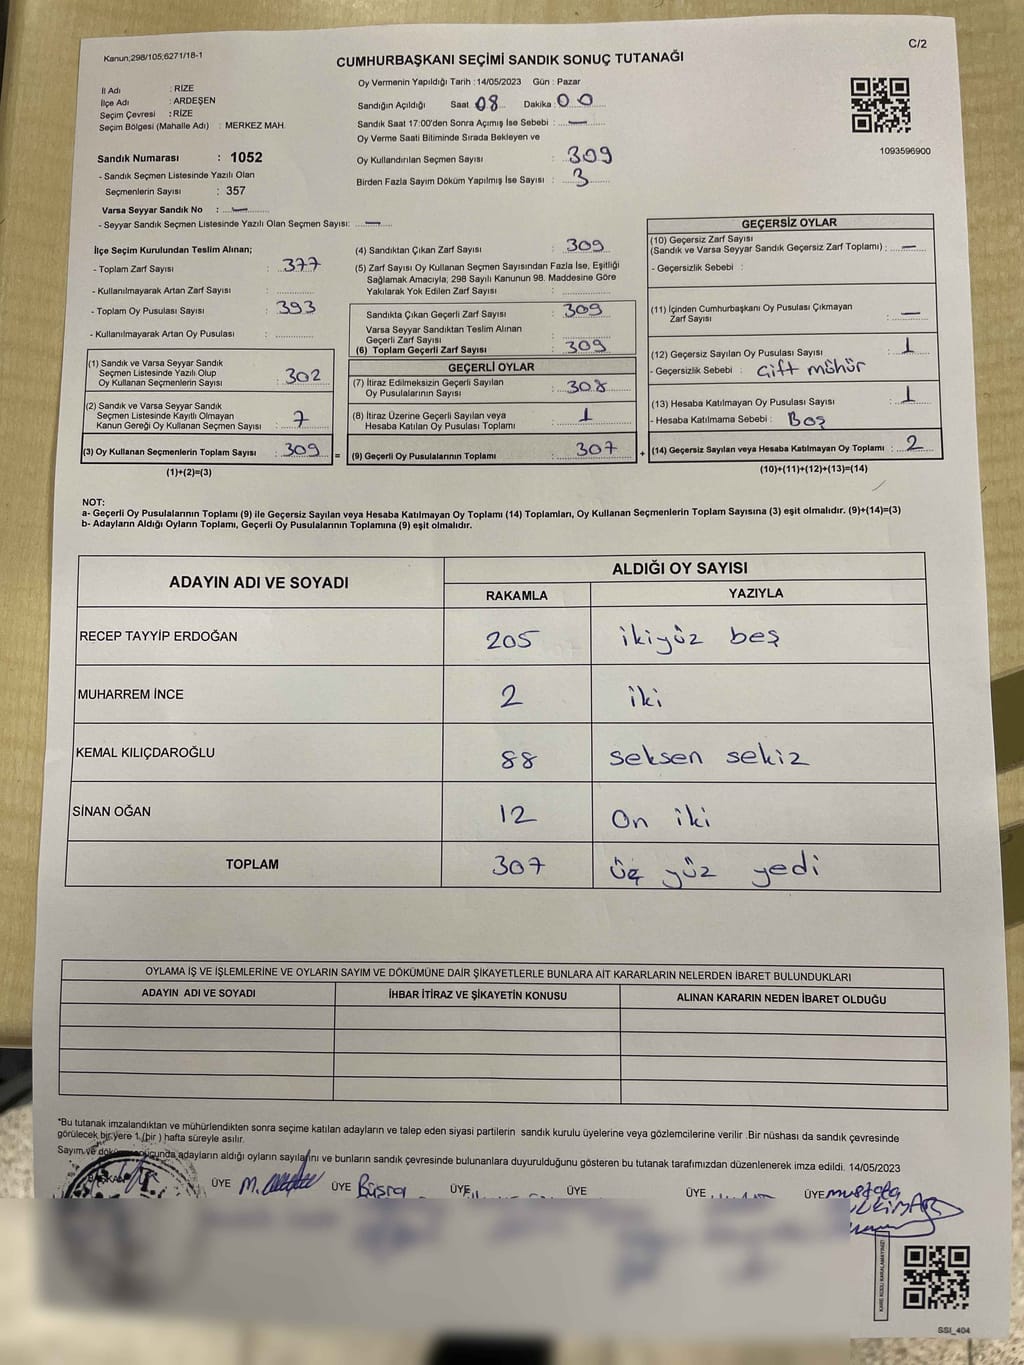 Kanun;298/105;6271/18-1
C/2
CUMHURBAŞKANI SEÇİMİ SANDIK SONUÇ TUTANAĞI
İl Adı : RİZE
İlçe Adı : ARDEŞEN
Seçim Çevresi : RİZE
Seçim Bölgesi (Mahalle Adı) : MERKEZ MAH.
Sandık Numarası : 1052
- Sandık Seçmen Listesinde Yazılı Olan
Seçmenlerin Sayısı : 357
Varsa Seyyar Sandık No : —
- Seyyar Sandık Seçmen Listesinde Yazılı Olan Seçmen Sayısı: —
Oy Vermenin Yapıldığı Tarih : 14/05/2023 Gün : Pazar
Sandığın Açıldığı Saat 08 Dakika 00
Sandık Saat 17:00'den Sonra Açımış İse Sebebi : —
Oy Verme Saati Bitiminde Sırada Bekleyen ve
Oy Kullandırılan Seçmen Sayısı : 309
Birden Fazla Sayım Döküm Yapılmış İse Sayısı : 3
1093596900
İlçe Seçim Kurulundan Teslim Alınan;
- Toplam Zarf Sayısı : 377
- Kullanılmayarak Artan Zarf Sayısı :
- Toplam Oy Pusulası Sayısı : 393
- Kullanılmayarak Artan Oy Pusulası :
(1) Sandık ve Varsa Seyyar Sandık
Seçmen Listesinde Yazılı Olup
Oy Kullanan Seçmenlerin Sayısı : 302
(2) Sandık ve Varsa Seyyar Sandık
Seçmen Listesinde Kayıtlı Olmayan
Kanun Gereği Oy Kullanan Seçmen Sayısı : 7
(3) Oy Kullanan Seçmenlerin Toplam Sayısı : 309 =
(1)+(2)=(3)
(4) Sandıktan Çıkan Zarf Sayısı : 309
(5) Zarf Sayısı Oy Kullanan Seçmen Sayısından Fazla İse, Eşitliği
Sağlamak Amacıyla, 298 Sayılı Kanunun 98. Maddesine Göre
Yakılarak Yok Edilen Zarf Sayısı :
Sandıkta Çıkan Geçerli Zarf Sayısı : 309
Varsa Seyyar Sandıktan Teslim Alınan
Geçerli Zarf Sayısı :
(6) Toplam Geçerli Zarf Sayısı : 309
GEÇERLİ OYLAR
(7) İtiraz Edilmeksizin Geçerli Sayılan
Oy Pusulasının Sayısı : 308
(8) İtiraz Üzerine Geçerli Sayılan veya
Hesaba Katılan Oy Pusulası Toplamı : 1
(9) Geçerli Oy Pusulalarının Toplamı : 307 +
GEÇERSİZ OYLAR
(10) Geçersiz Zarf Sayısı
(Sandık ve Varsa Seyyar Sandık Geçersiz Zarf Toplamı) : —
- Geçersizlik Sebebi :
(11) İçinden Cumhurbaşkanı Oy Pusulası Çıkmayan
Zarf Sayısı : —
(12) Geçersiz Sayılan Oy Pusulası Sayısı : 1
- Geçersizlik Sebebi : Çift mühür
(13) Hesaba Katılmayan Oy Pusulası Sayısı : 1
- Hesaba Katılmama Sebebi : Boş
(14) Geçersiz Sayılan veya Hesaba Katılmayan Oy Toplamı : 2
(10)+(11)+(12)+(13)=(14)
NOT:
a- Geçerli Oy Pusulalarının Toplamı (9) ile Geçersiz Sayılan veya Hesaba Katılmayan Oy Toplamı (14) Toplamları, Oy Kullanan Seçmenlerin Toplam Sayısına (3) eşit olmalıdır. (9)+(14)=(3)
b- Adayların Aldığı Oyların Toplamı, Geçerli Oy Pusulalarının Toplamına (9) eşit olmalıdır.
ADAYIN ADI VE SOYADI
ALDIĞI OY SAYISI
RAKAMLA YAZIYLA
RECEP TAYYİP ERDOĞAN 205 ikiyüz beş
MUHARREM İNCE 2 iki
KEMAL KILIÇDAROĞLU 88 seksen sekiz
SİNAN OĞAN 12 On iki
TOPLAM 307 üç yüz yedi
OYLAMA İŞ VE İŞLEMLERİNE VE OYLARIN SAYIM VE DÖKÜMÜNE DAİR ŞİKAYETLERLE BUNLARA AİT KARARLARIN NELERDEN İBARET BULUNDUKLARI
ADAYIN ADI VE SOYADI İHBAR İTİRAZ VE ŞİKAYETİN KONUSU ALINAN KARARIN NEDEN İBARET OLDUĞU
*Bu tutanak imzalandıktan ve mühürlendikten sonra seçime katılan adayların ve talep eden siyasi partilerin sandık kurulu üyelerine veya gözlemcilerine verilir .Bir nüshası da sandık çevresinde
görülecek bir yere 1 (bir ) hafta süreyle asılır.
Sayım ve döküm sonucunda adayların aldığı oyların sayılarını ve bunların sandık çevresinde bulunanlara duyurulduğunu gösteren bu tutanak tarafımızdan düzenlenerek imza edildi. 14/05/2023
BAŞKAN ÜYE M. ÜYE Büşra ÜYE ÜYE ÜYE ÜYE mustafa
SSI_404